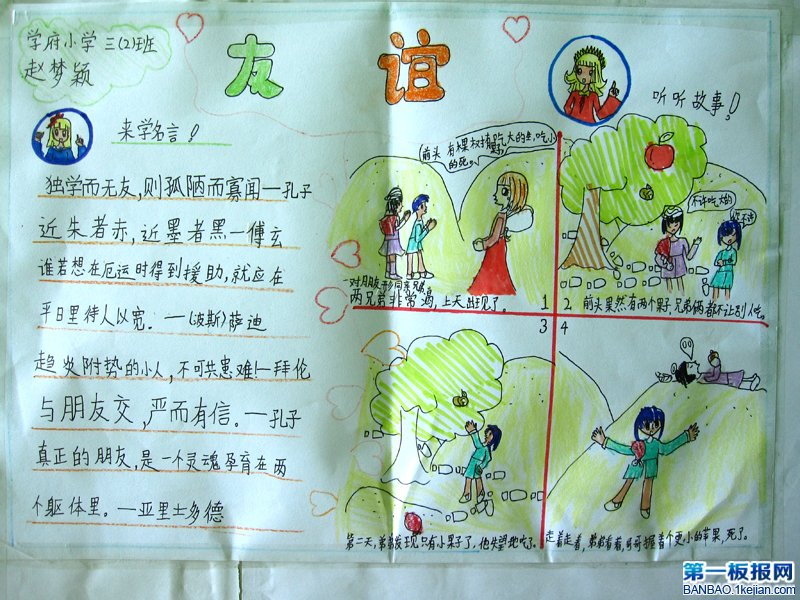 学府小学 三(2)班
赵梦颖
友谊
听听故事!
来学名言!
独学而无友,则孤陋而寡闻—孔子
近朱者赤,近墨者黑—傅玄
谁若想在厄运时得到援助,就应在
平日里待人以宽.—(波斯)萨迪
趋炎附势的小人,不可共患难!—拜伦
与朋友交,严而有信.—孔子
真正的朋友,是一个灵魂孕育在两
个躯体里.—亚里士多德
前头 有棵
大的生,吃小
的死。
一对朋友形同亲兄弟
两兄弟非常渴,上天出现了. 1
不许吃大的
2 前头果然有两个果子,兄弟俩都不让别人吃。
3
第二天,弟弟发现只有小果子了,他失望地吃了.
4
走着走着,弟弟看着,哥哥握着个更小的苹果,死了.
第一板报网
BANBAO.1kejian.com